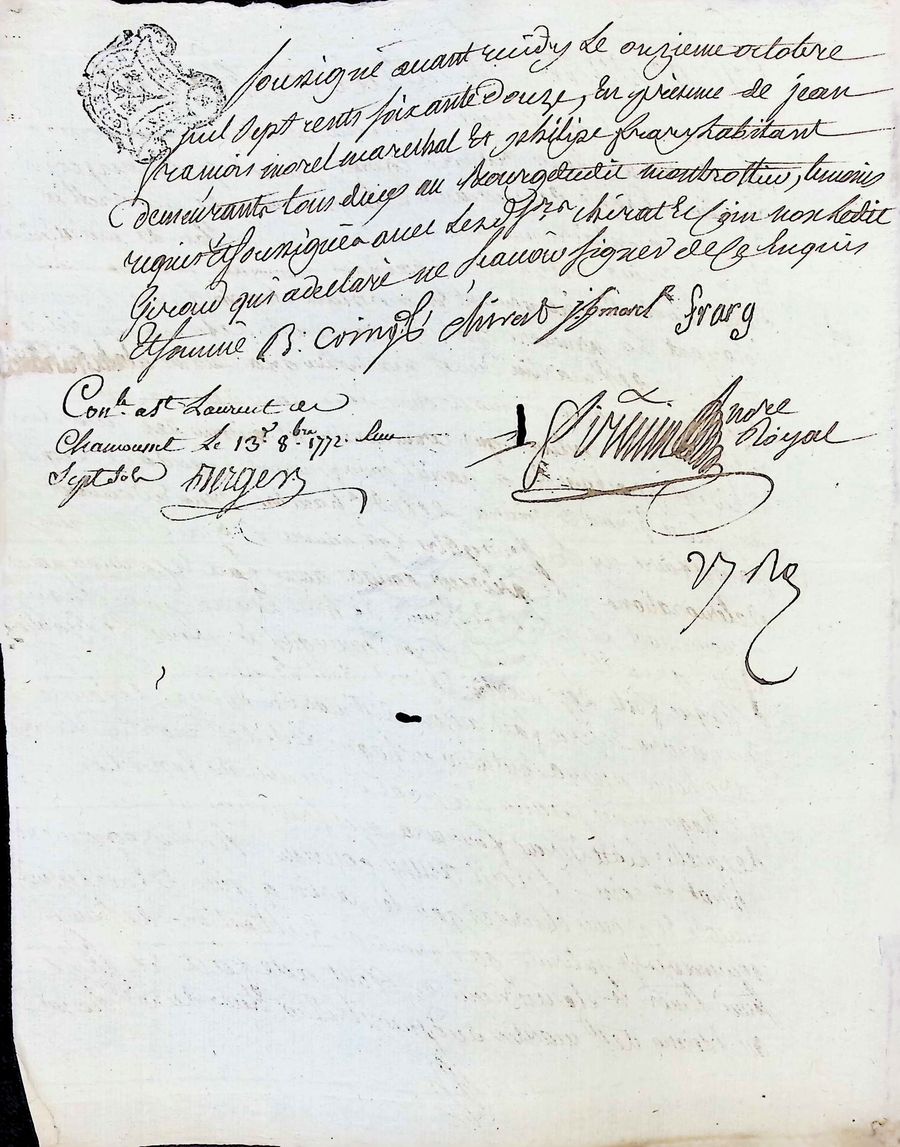 soussigné avant midy le onzieme octobre
mil sept cents soixante douze, En presence de jean
francois morel marechal Et philipe frary habitant
demeurants tous deux au bourg dudit montrottier, temoins
requis & soussignés avec Les d. chirat Et Coin non ledit
Giraud qui a declaré ne scavoir signer de ce Enquis
Et sommé B: Coingt chirat jf morel frarg
Con.le a st Laurent de
Chamousset Le 13.e 8.bre 1772. Recu
Sept sols Berger
nore
Royal